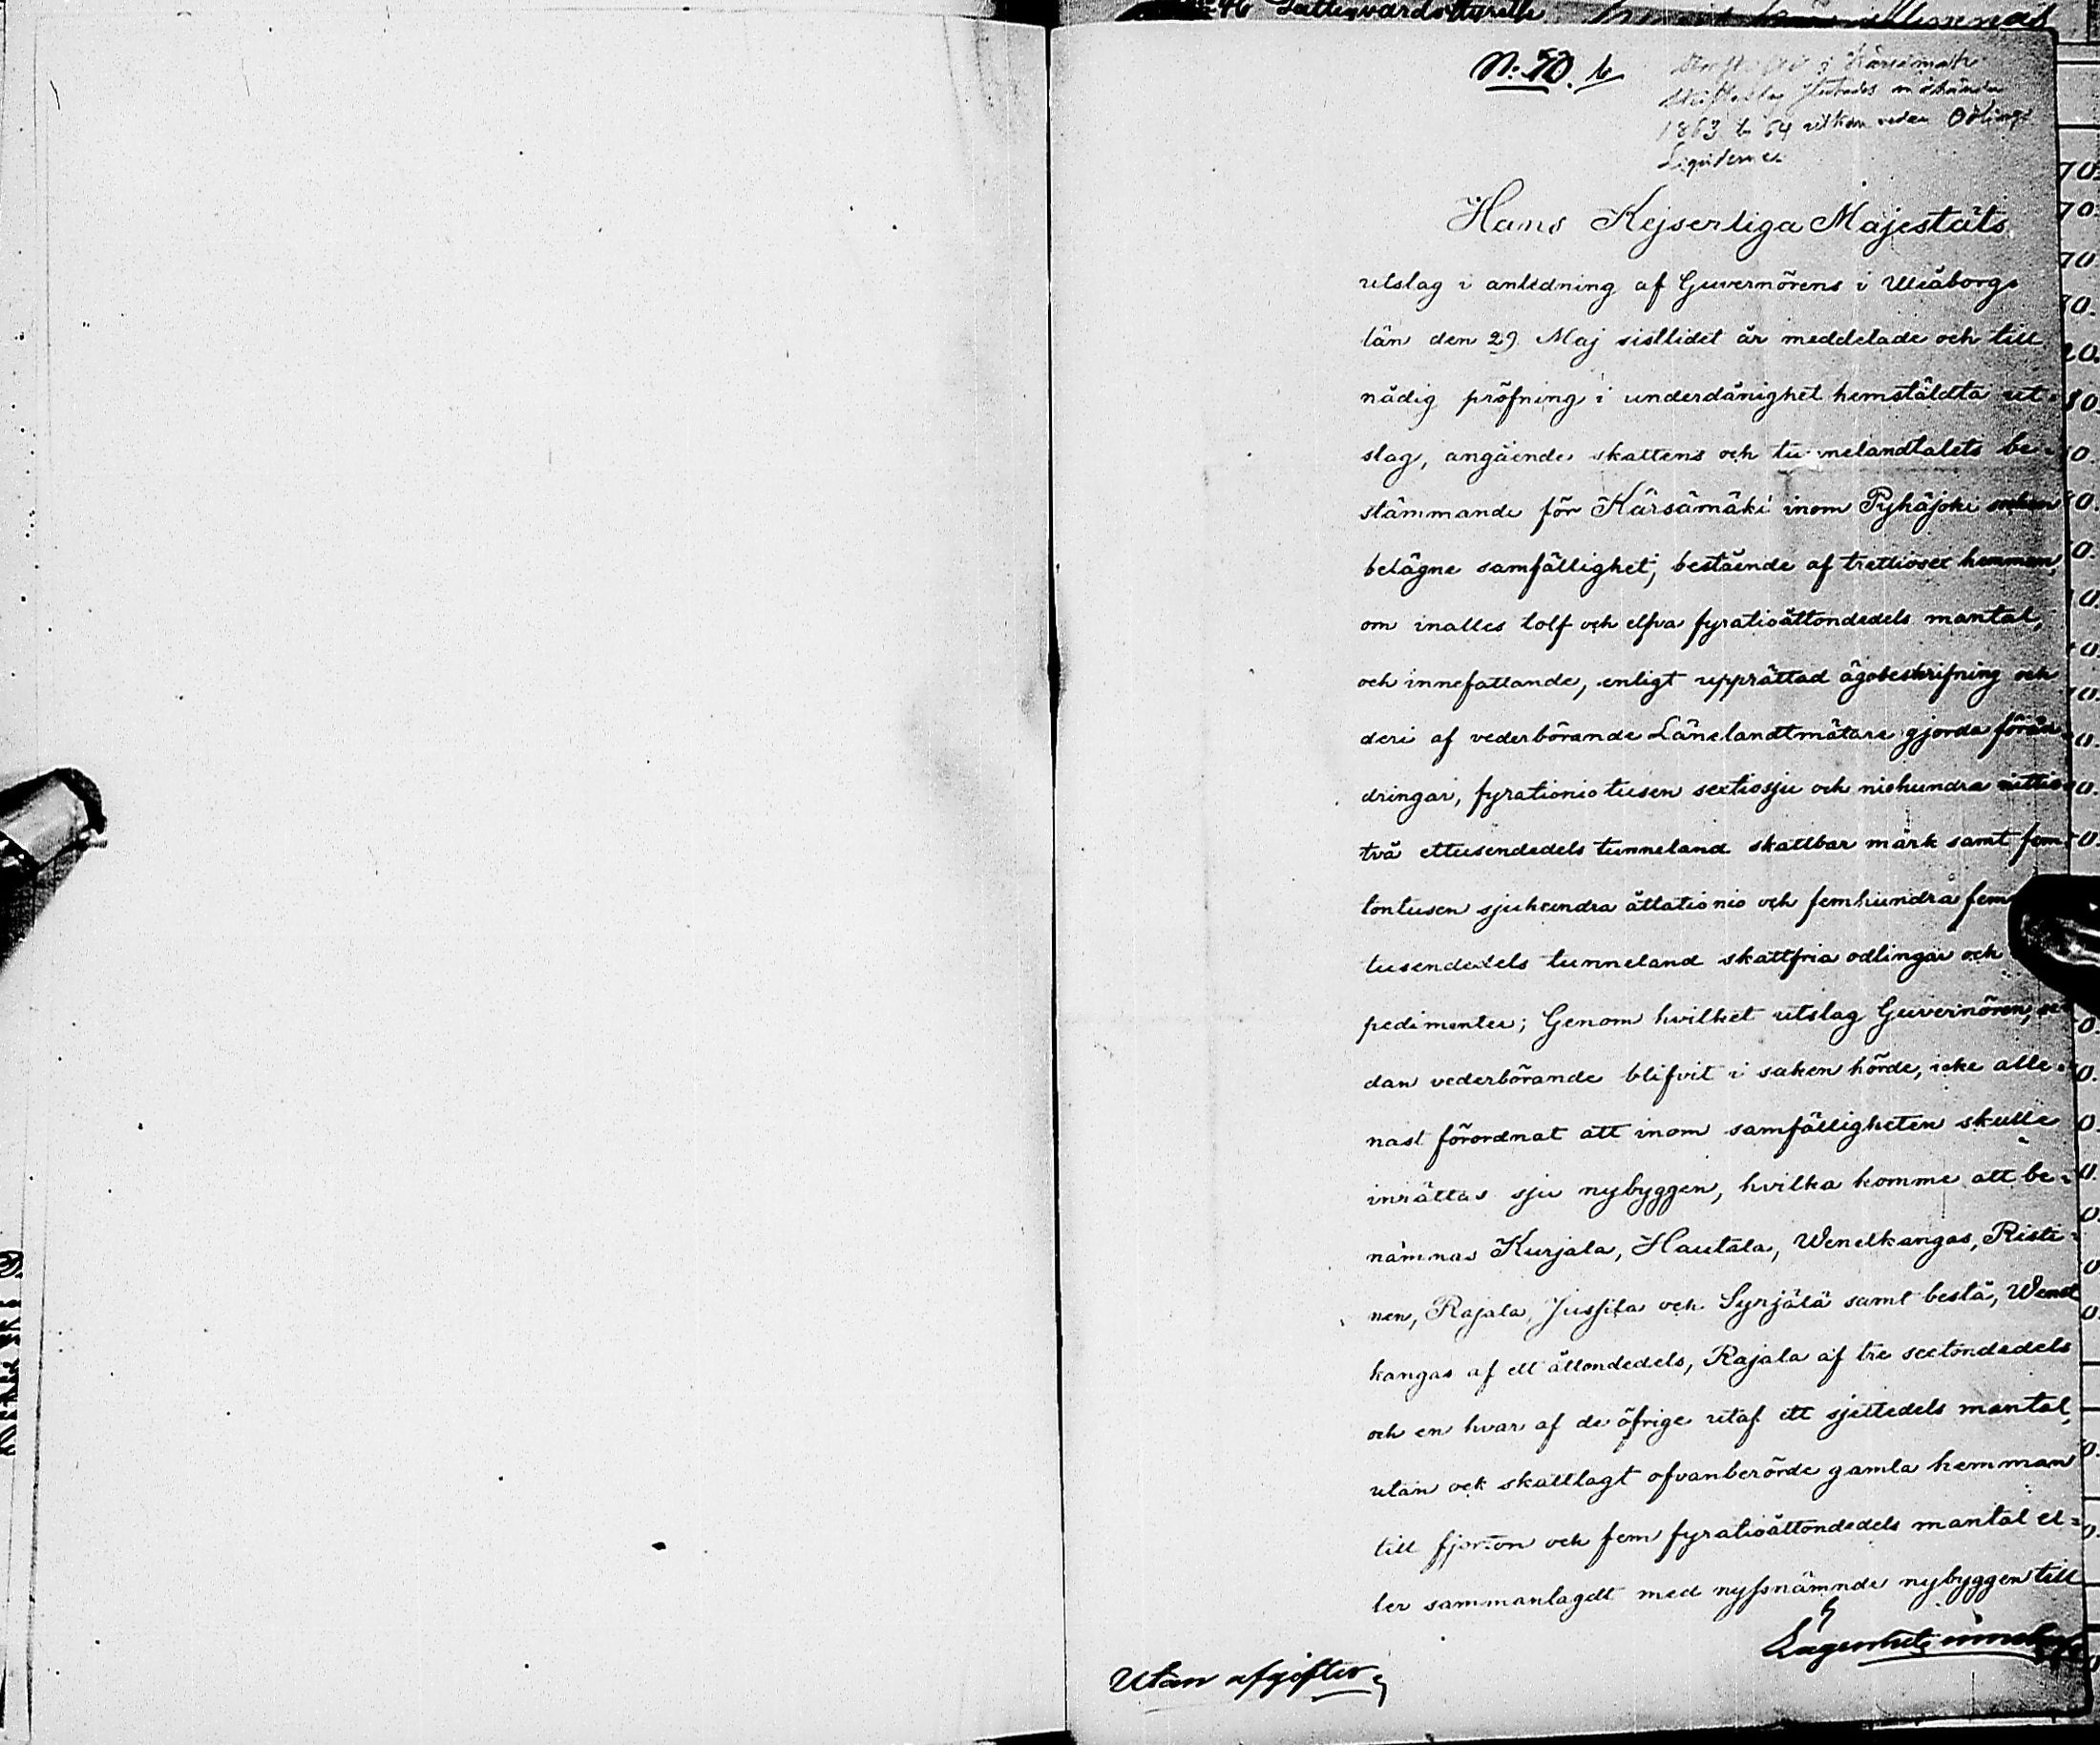 46 Fattigvårdsstyrelse
N: 70. b
1863 b 64
Hans Kejserliga Majestäts
utslag i anledning af Guvernörens i Uleåborgs
län den 29 Maj sistlidet år meddelade och till
nådig pröfning i underdånighet hemstäldta ut-
slag, angående skattens och tunnelandtalets be-
stämmande för Kärsämäki inom Pyhäjoki socken
belägne samfällighet, bestående af trettiosex hemman,
om inalles tolf och elfva fyratioåttondedels mantal,
och innefattande, enligt upprättad ägobeskrifning och
deri af vederbörande Länelandtmätare gjorda förän-
dringar, fyrationiotusen sextiosju och niohundra nittio
två ettusendedels tunneland skattbar mark samt fem-
tontusen sjuhundra åttationio och femhundra fem
tusendedels tunneland skattfria odlingar och
pedimenter; Genom hvilket utslag Guvernören, se-
dan vederbörande blifvit i saken hörde, icke alle-
nast förordnat att inom samfälligheten skulle
inrättas sju nybyggen, hvilka komme att be-
nämnas Kurjala, Hautala, Wenetkangas, Risti-
nen, Rajala, Jussila och Syrjälä samt bestå, Wenet
kangas af ett åttondedels, Rajala af tre sextondedels
och en hvar af de öfrige utaf ett sjettedels mantal,
utan ock skattlagt ofvanberörde gamla hemman
till fjorton och fem fyratioåttondedels mantal el-
ler sammanlagdt med nyssnämnde nybyggen till
Utan afgifter